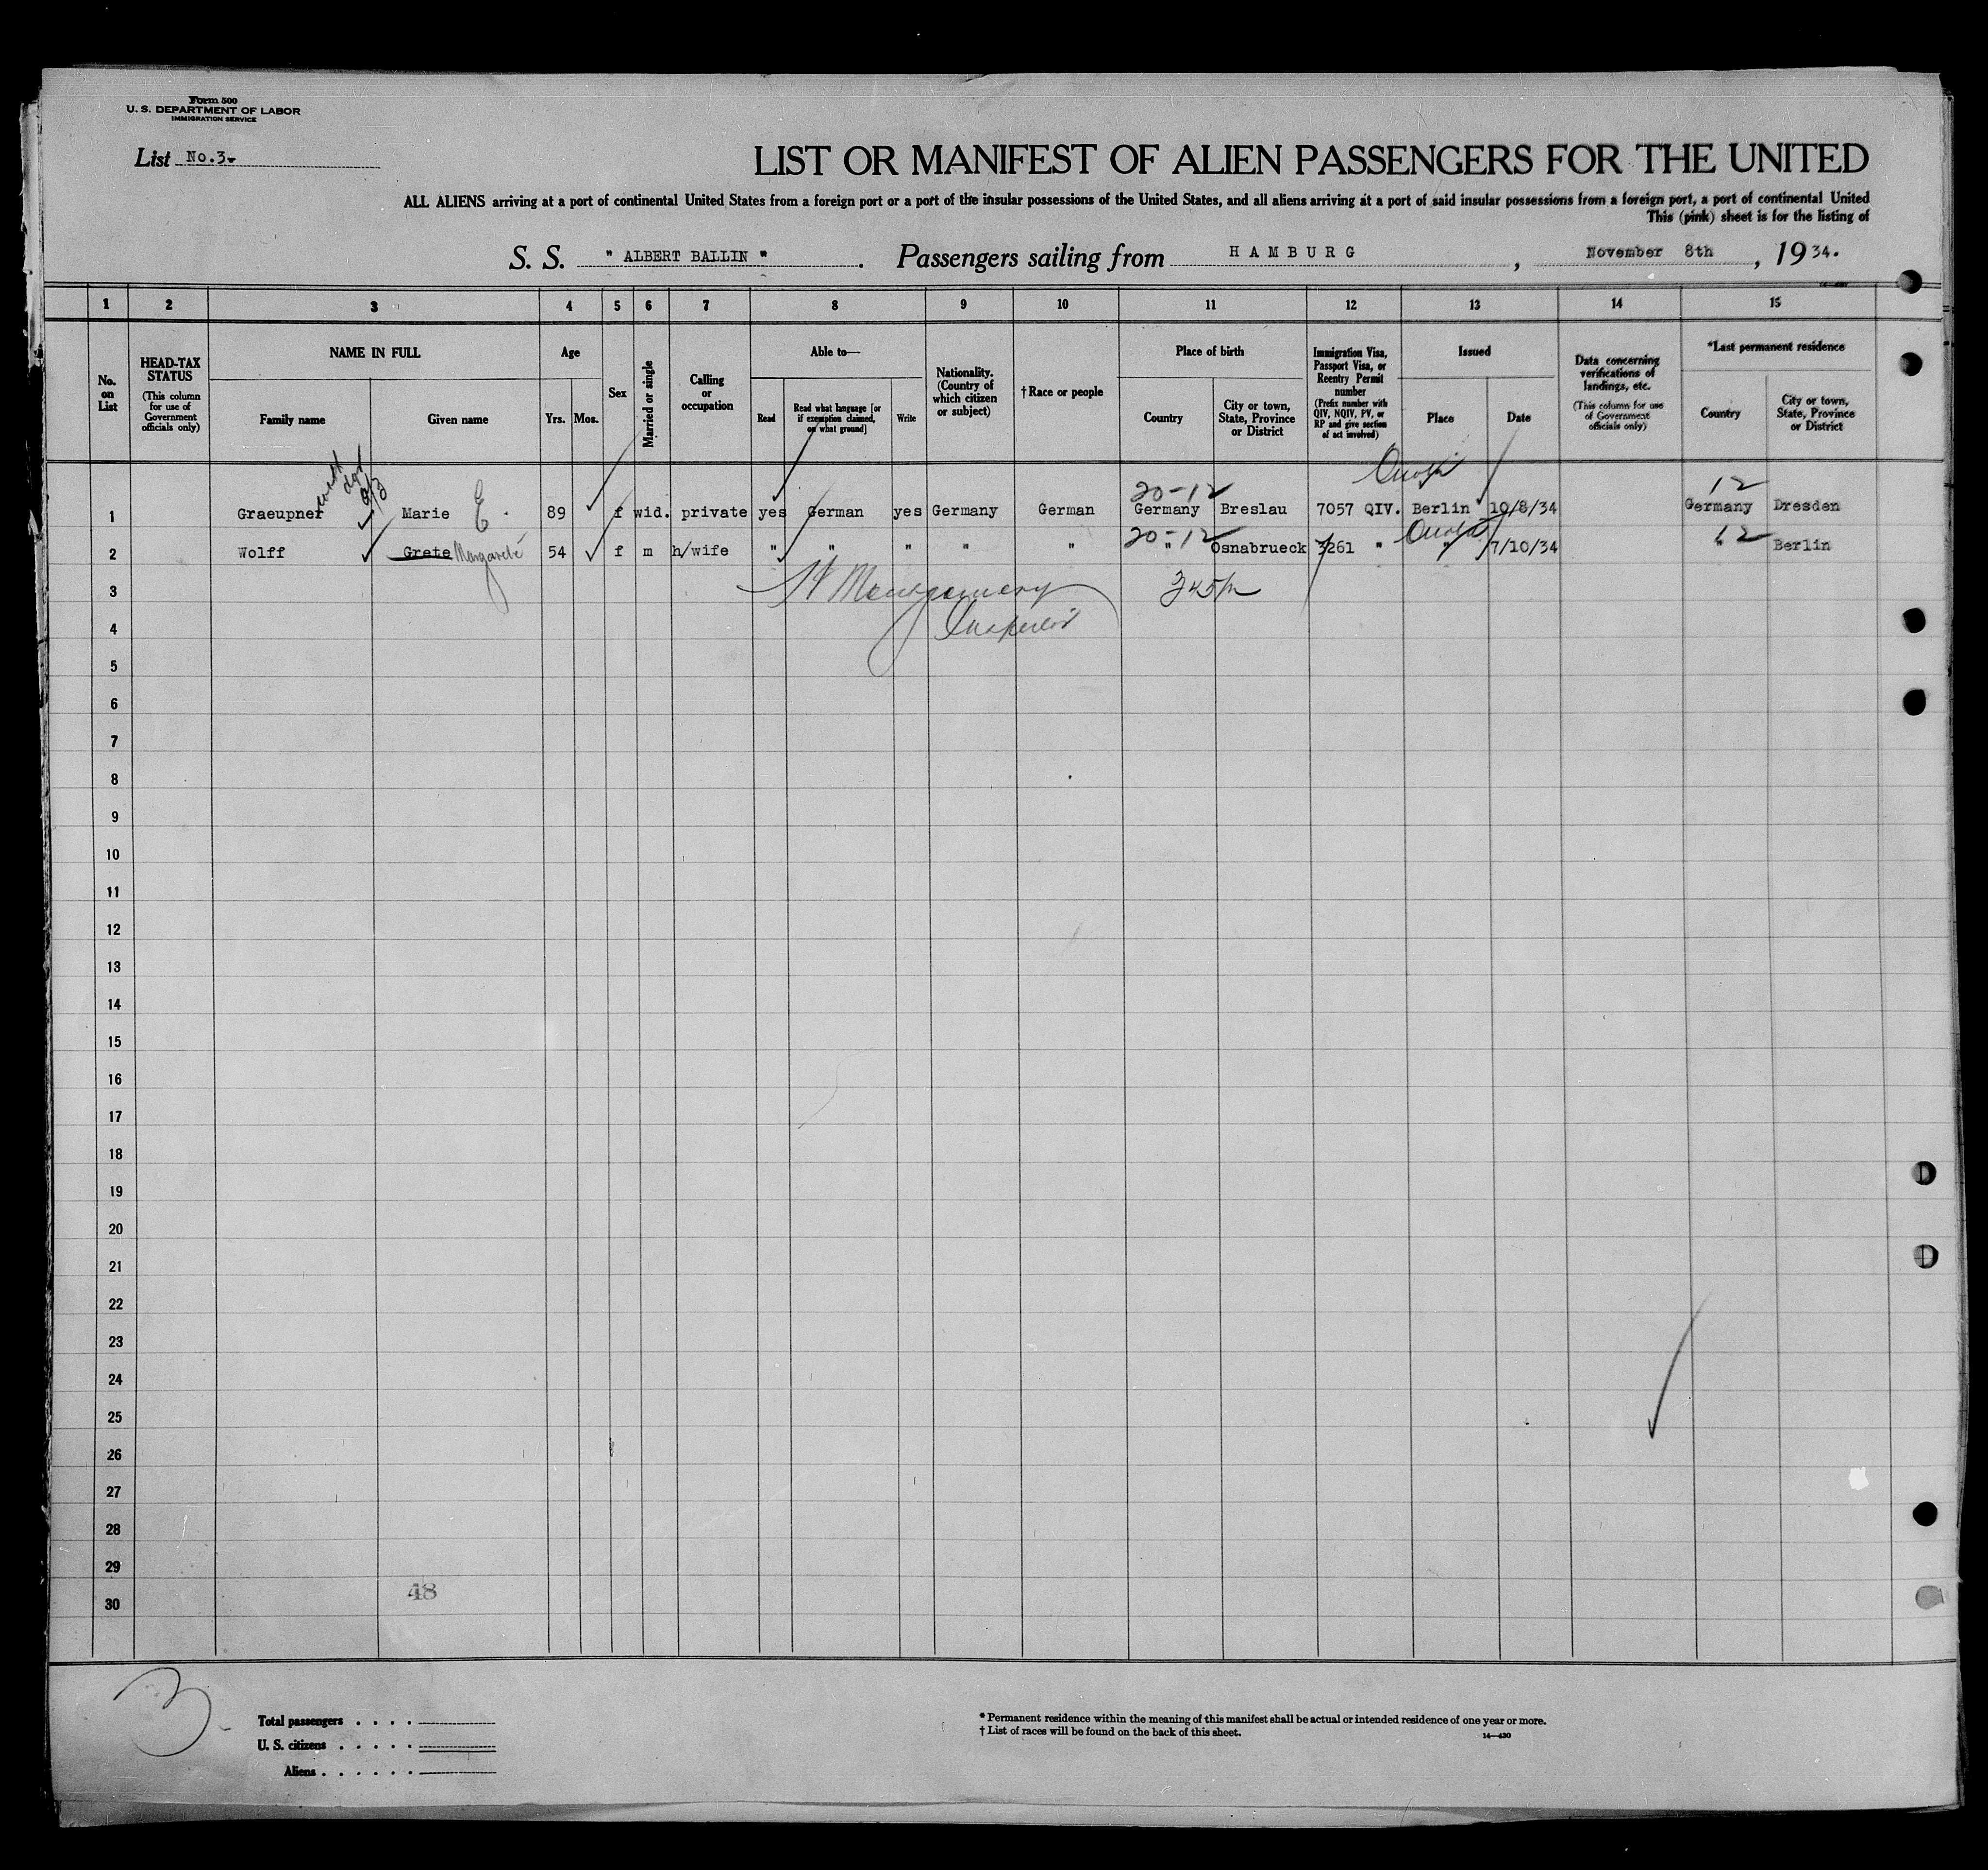 Form 500
U. S. DEPARTMENT OF LABOR
IMMIGRATION SERVICE
List No.3-
LIST OR MANIFEST OF ALIEN PASSENGERS FOR THE UNITED
ALL ALIENS arriving at a port of continental United States from a foreign port or a port of the insular possessions of the United States, and all aliens arriving at a port of said insular possessions from a foreign port, a port of continental United
This (pink) sheet is for the listing of
S. S. " ALBERT BALLIN " . Passengers sailing from HAMBURG , November 8th , 1934.
1 2 3 4 5 6 7 8 9 10 11 12 13 14 15
No. on List
HEAD-TAX STATUS
(This column for use of Government officials only)
NAME IN FULL
Family name
Given name
Age
Yrs. Mos.
Sex
Married or single
Calling or occupation
Able to—
Read
Read what language [or if exemption claimed, on what ground]
Write
Nationality. (Country of which citizen or subject)
† Race or people
Place of birth
Country
City or town, State, Province or District
Immigration Visa, Passport Visa, or Reentry Permit number
(Prefix number with QIV, NQIV, PV, or RP and give section of act involved)
Issued
Place
Date
Data concerning verifications of landings, etc.
(This column for use of Government officials only)
*Last permanent residence
Country
City or town, State, Province or District
20-12 12
1 Graeupner Marie E. 89 f wid. private yes German yes Germany German Germany Breslau 7057 QIV. Berlin 10/8/34 Germany Dresden
20-12 12
2 Wolff Grete Margarete 54 f m h/wife " " " " " " Osnabrueck 3261 " " 7/10/34 " Berlin
3 Montgomery 345
4 Inspector
5
6
7
8
9
10
11
12
13
14
15
16
17
18
19
20
21
22
23
24
25
26
27
28
29
30
48
3
Total passengers . . . .
U. S. citizens . . . . .
Aliens . . . . . .
* Permanent residence within the meaning of this manifest shall be actual or intended residence of one year or more.
† List of races will be found on the back of this sheet.
14—430